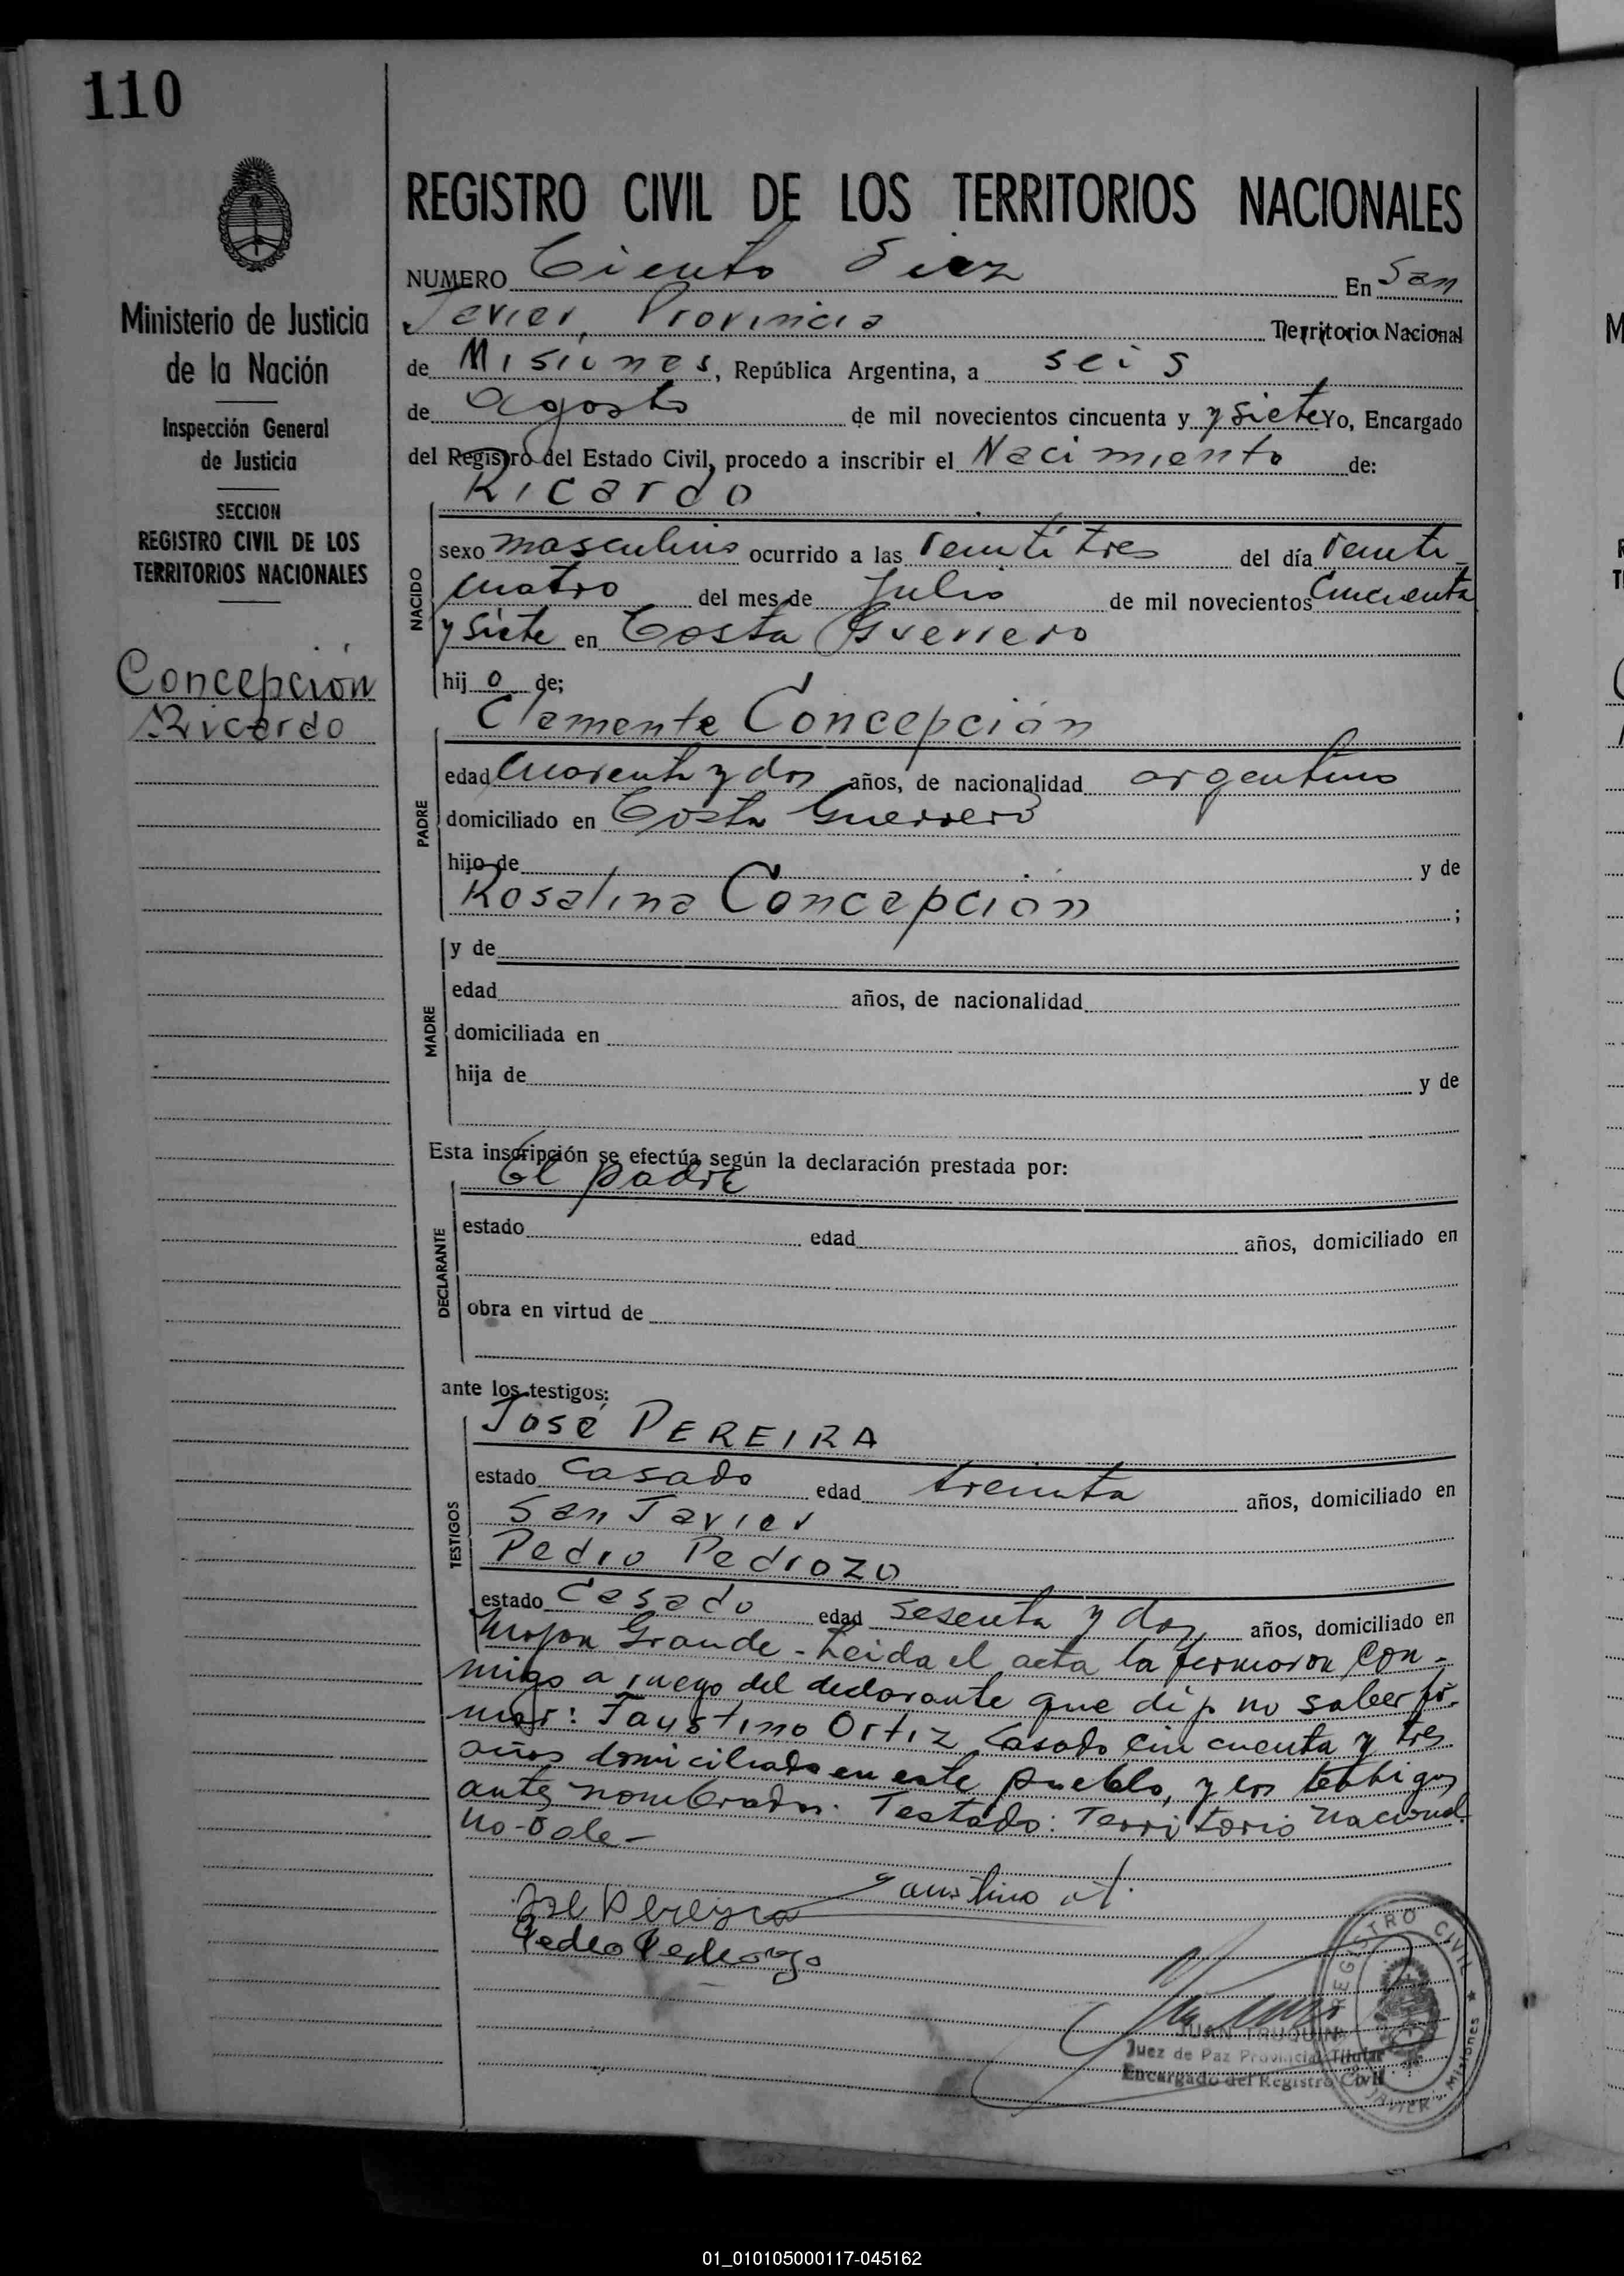 110
Ministerio de Justicia
de la Nación
Inspección General
de Justicia
SECCION
REGISTRO CIVIL DE LOS
TERRITORIOS NACIONALES
Concepción
Ricardo
REGISTRO CIVIL DE LOS TERRITORIOS NACIONALES
NUMERO Ciento Diez En San
Javier, Provincia Territorio Nacional
de Misiones, República Argentina, a seis
de agosto de mil novecientos cincuenta y y siete Yo, Encargado
del Registro del Estado Civil, procedo a inscribir el Nacimiento de:
Ricardo
NACIDO
sexo masculino ocurrido a las veinti tres del día veinti
cuatro del mes de Julio de mil novecientos cincuenta
y siete en Costa Guerrero
hij o de;
Clemente Concepción
PADRE
edad cuarenta y dos años, de nacionalidad argentino
domiciliado en Costa Guerrero
hijo de y de
Rosalina Concepción ;
MADRE
y de
edad años, de nacionalidad
domiciliada en
hija de y de
Esta inscripción se efectúa según la declaración prestada por:
El padre
DECLARANTE
estado edad años, domiciliado en
obra en virtud de
ante los testigos:
José PEREIRA
TESTIGOS
estado casado edad treinta años, domiciliado en
San Javier
Pedro Pedrozo
estado Casado edad sesenta y dos años, domiciliado en
Mojon Grande - Leida el acta la firmaron con-
migo a ruego del declarante que dijo no saber fir-
mar: Faustino Ortiz casado cin cuenta y tres
años domiciliado en este pueblo, y los testigos
antes nombrados. Testado: Territorio Nacional
no-vale-
Faustino
José Pereyra
Pedro Pedrozo
REGISTRO CIVIL
JAVIER
MISIONES
JUAN TRUQUIN
Juez de Paz Provincial Titular
Encargado del Registro Civil
01_010105000117-045162